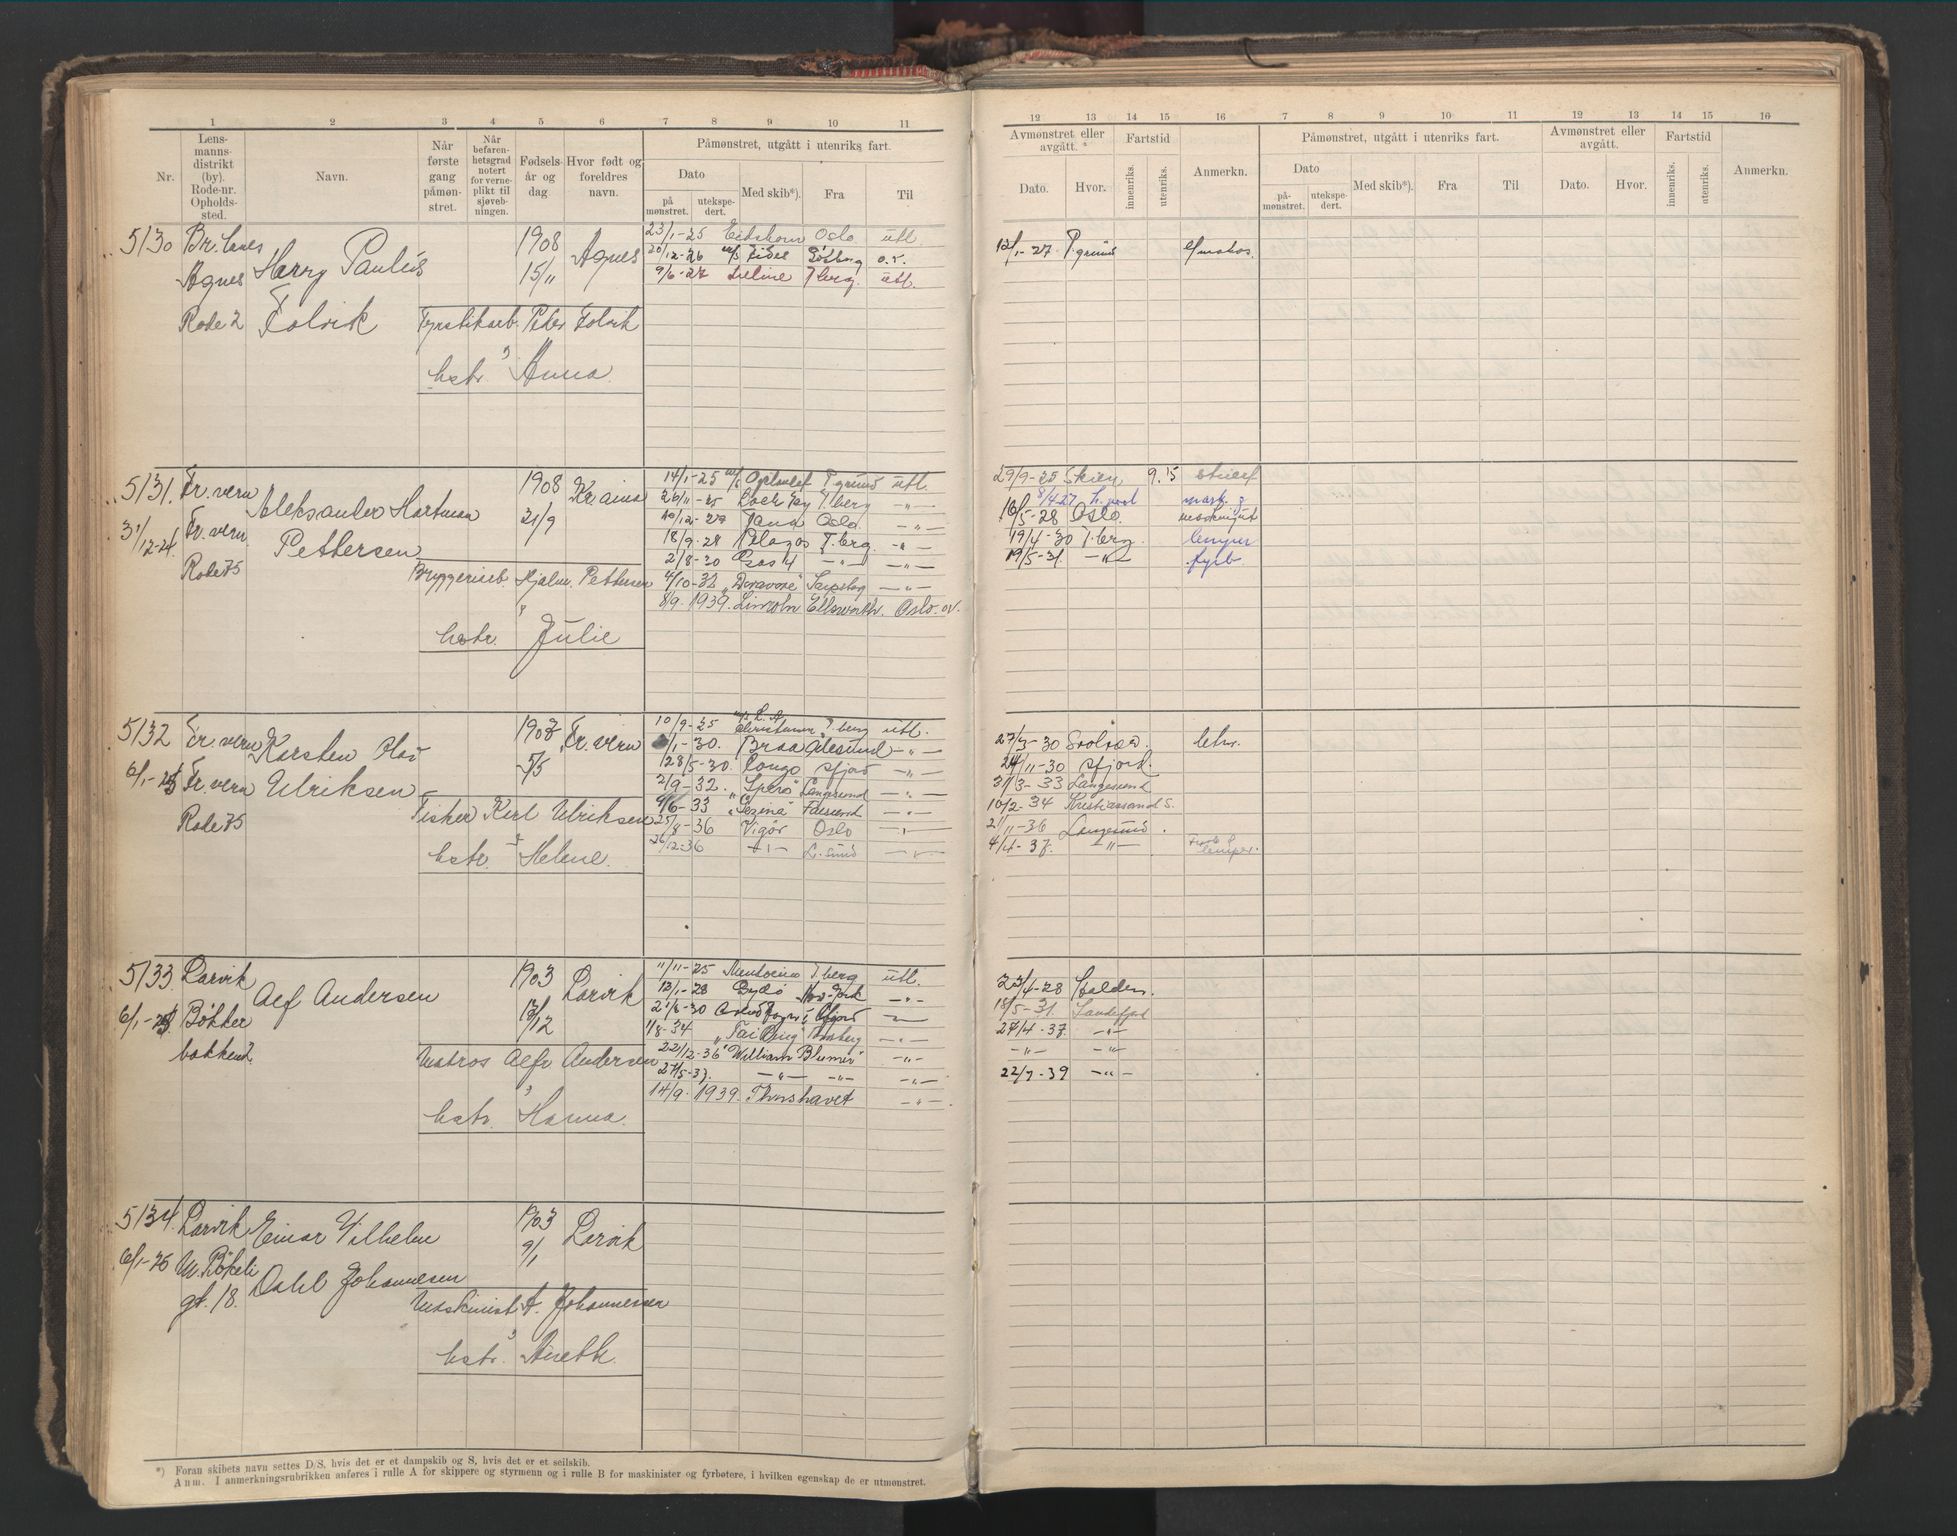 1 2 3 4 5 6 7 8 9 10 11
Nr. Lens-manns-distrikt (by). Rode-nr. Opholds-sted. Navn. Når første gang påmøn-stret. Når befaren-hetsgrad notert for verne-plikt til sjøveb-ningen. Fødsels-år og dag Hvor født og foreldres navn. Påmønstret, utgått i utenriks fart.
Dato
på mønstret. utekspe-dert. Med skib*). Fra Til
5130 Br.lanes Harry Paulus 1908 Agnes 23/1-25 Eidshorn Oslo utl.
20/12-26 m/s Fidel Gøtbrg o.v.
Agnes 15/11 9/6-27 Seline T.berg. utl.
Rode 2 Folvik Fyrstikarb. Peder Folvik
hstr. Anna
5131. Fr.vern Aleksander Hartman 1908 Kr.ania 14/1-25 T.grund utl.
26/11-25 T.berg -"-
31/12-24 Fr.vern 21/9 10/12-27 Tana Oslo -"-
Pettersen 18/9-28 Pelagos T.berg. -"-
Rode 75 2/8-30 Psos 4 -"- -"-
Bryggeriarb. Hjalm. Pettersen 4/10-32 Sarpsborg -"-
8/9.1939. Lincoln Ellsworth. Oslo. ov.
hstr. Julie
5132 Fr.vern Karsten Olav 1903 Fr.vern 10/9-25 T.berg utl.
/1-30. Braa Ålesund -"-
6/1-25 Fr.vern Ulriksen 5/5 28/5-30. Congo Sfjord -"-
2/9-32. "Spero" Langesund -"-
Rode 75 Fisker Karl Ulriksen 9/6-33 Farsund -"-
25/8-36 Vigør Oslo -"-
hstr. Helene 26/12-36 -"- L.sund -"-
5133 Larvik Alf Andersen 1903 Larvik 11/11-25 T.berg utl.
12/1-28 Bydø New-York -"-
6/1-25. Bøkker 12/12 21/8-30 Sfjord -"-
1/8-34 "Tai Ping" Tønsberg -"-
bakken 2 Matros Alfr Andersen 22/12-36 "William Blumer" -"-
27/5-37. -"- -"- -"-
hstr. Hanna 14/9.1939. Thorshavet -"-
5134. Larvik Einar Vilhelm 1903 Larvik
6/1-25 M. Bøkeli 9/1
gt. 18. Dahl Johannesen
Maskinist A. Johannessen
hstr. Anette.
*) Foran skibets navn settes D/S, hvis det er et dampskib og S, hvis det er et seilskib.
Anm. I anmerkningsrubrikken anføres i rulle A for skippere og styrmenn og i rulle B for maskinister og fyrbøtere, i hvilken egenskap de er utmønstret.
12 13 14 15 16 7 8 9 10 11 12 13 14 15 16
Avmønstret eller avgått. Fartstid Anmerkn. Påmønstret, utgått i utenriks fart. Avmønstret eller avgått. Fartstid Anmerkn.
Dato. Hvor. innenriks. utenriks. Dato på-mønstret. utekspe-dert. Med skib*). Fra Til Dato. Hvor. innenriks. utenriks.
12/1-27 P.grund e/matros.
29/9-25 Skien 9.15
8/4 27
16/5-28 Oslo.
19/4-30 T.berg. lemper
19/5-31. -"- fyrb.
27/3-30 Svolvær. letm.
24/11-30 Sfjord.
31/3-33 Langesund
10/2-34 Kristiansand S.
21/11-36 Langesund.
4/4-37. -"- lemper.
23/4-28 Halden.
18/5-31. Sandefjord
27/4-37. -"-
-"- -"-
22/7-39 -"-